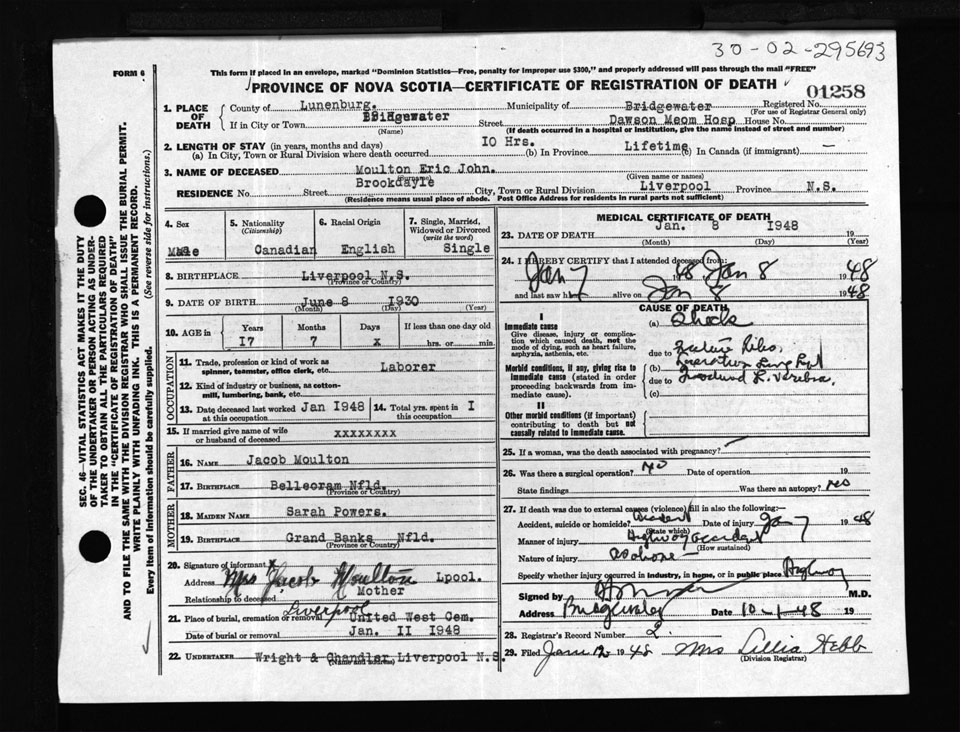 30-02-295693
FORM 6
This form if placed in an envelope, marked "Dominion Statistics—Free, penalty for improper use $300," and properly addressed will pass through the mail "FREE"
PROVINCE OF NOVA SCOTIA—CERTIFICATE OF REGISTRATION OF DEATH
01258
SEC. 46—VITAL STATISTICS ACT MAKES IT THE DUTY
OF THE UNDERTAKER OR PERSON ACTING AS UNDER-
TAKER TO OBTAIN ALL THE PARTICULARS REQUIRED
IN THE "CERTIFICATE OF REGISTRATION OF DEATH"
AND TO FILE THE SAME WITH THE DIVISION REGISTRAR WHO SHALL ISSUE THE BURIAL PERMIT.
WRITE PLAINLY WITH UNFADING INK. THIS IS A PERMANENT RECORD.
Every item of Information should be carefully supplied. (See reverse side for instructions.)
1. PLACE OF DEATH
County of Lunenburg. Municipality of Bridgewater Registered No.
(For use of Registrar General only)
If in City or Town Bridgewater Street Dawson Meom Hosp House No.
(Name) (If death occurred in a hospital or institution, give the name instead of street and number)
2. LENGTH OF STAY (in years, months and days)
(a) In City, Town or Rural Division where death occurred IO Hrs. (b) In Province Lifetime (c) In Canada (if immigrant) —
3. NAME OF DECEASED Moulton Eric John.
(Surname) (Given name or names)
RESIDENCE No. Street Brookdayle City, Town or Rural Division Liverpool Province N.S.
(Residence means usual place of abode. Post Office Address for residents in rural parts not sufficient)
4. Sex
Male
5. Nationality (Citizenship)
Canadian
6. Racial Origin
English
7. Single, Married, Widowed or Divorced (write the word)
Single
8. BIRTHPLACE Liverpool N.S.
(Province or Country)
9. DATE OF BIRTH June 8 I930
(Month) (Day) (Year)
10. AGE in Years Months Days If less than one day old
I7 7 x hrs. or min.
OCCUPATION
11. Trade, profession or kind of work as spinner, teamster, office clerk, etc. Laborer
12. Kind of industry or business, as cotton-mill, lumbering, bank, etc.
13. Date deceased last worked at this occupation Jan I948
14. Total yrs. spent in this occupation I
15. If married give name of wife or husband of deceased xxxxxxxx
FATHER
16. NAME Jacob Moulton
17. BIRTHPLACE Belleoram Nfld.
(Province or Country)
MOTHER
18. MAIDEN NAME Sarah Powers.
19. BIRTHPLACE Grand Banks Nfld.
(Province or Country)
20. Signature of informant x Mrs Jacob Moulton
Address Lpool.
Relationship to deceased Mother
21. Place of burial, cremation or removal Liverpool United West Cem.
Date of burial or removal Jan. II I948
22. UNDERTAKER Wright & Chandler Liverpool N.S.
(Name and address)
MEDICAL CERTIFICATE OF DEATH
23. DATE OF DEATH Jan. 8 I948 19
(Month) (Day) (Year)
24. I HEREBY CERTIFY that I attended deceased from:
Jan 7 1948 Jan 8 1948
and last saw h alive on Jan 8 1948
CAUSE OF DEATH
I
Immediate cause
Give disease, injury or complication which caused death, not the mode of dying, such as heart failure, asphyxia, asthenia, etc.
(a) Shock
due to Ribs,
Morbid conditions, if any, giving rise to immediate cause (stated in order proceeding backwards from immediate cause).
(b) Lung
due to L. Vertebra,
(c)
II
Other morbid conditions (if important) contributing to death but not causally related to immediate cause.
25. If a woman, was the death associated with pregnancy? —
26. Was there a surgical operation? no Date of operation 19
State findings Was there an autopsy? no
27. If death was due to external causes (violence) fill in also the following:—
Accident, suicide or homicide? Accident Date of injury Jan 7 1948
(State which)
Manner of injury Highway accident
(How sustained)
Nature of injury as above
Specify whether injury occurred in industry, in home, or in public place Highway
Signed by M.D.
Address Bridgewater Date 10-1-48 19
28. Registrar's Record Number 2
29. Filed Jan 12 1948 Mrs Lillia Hebb
(Division Registrar)